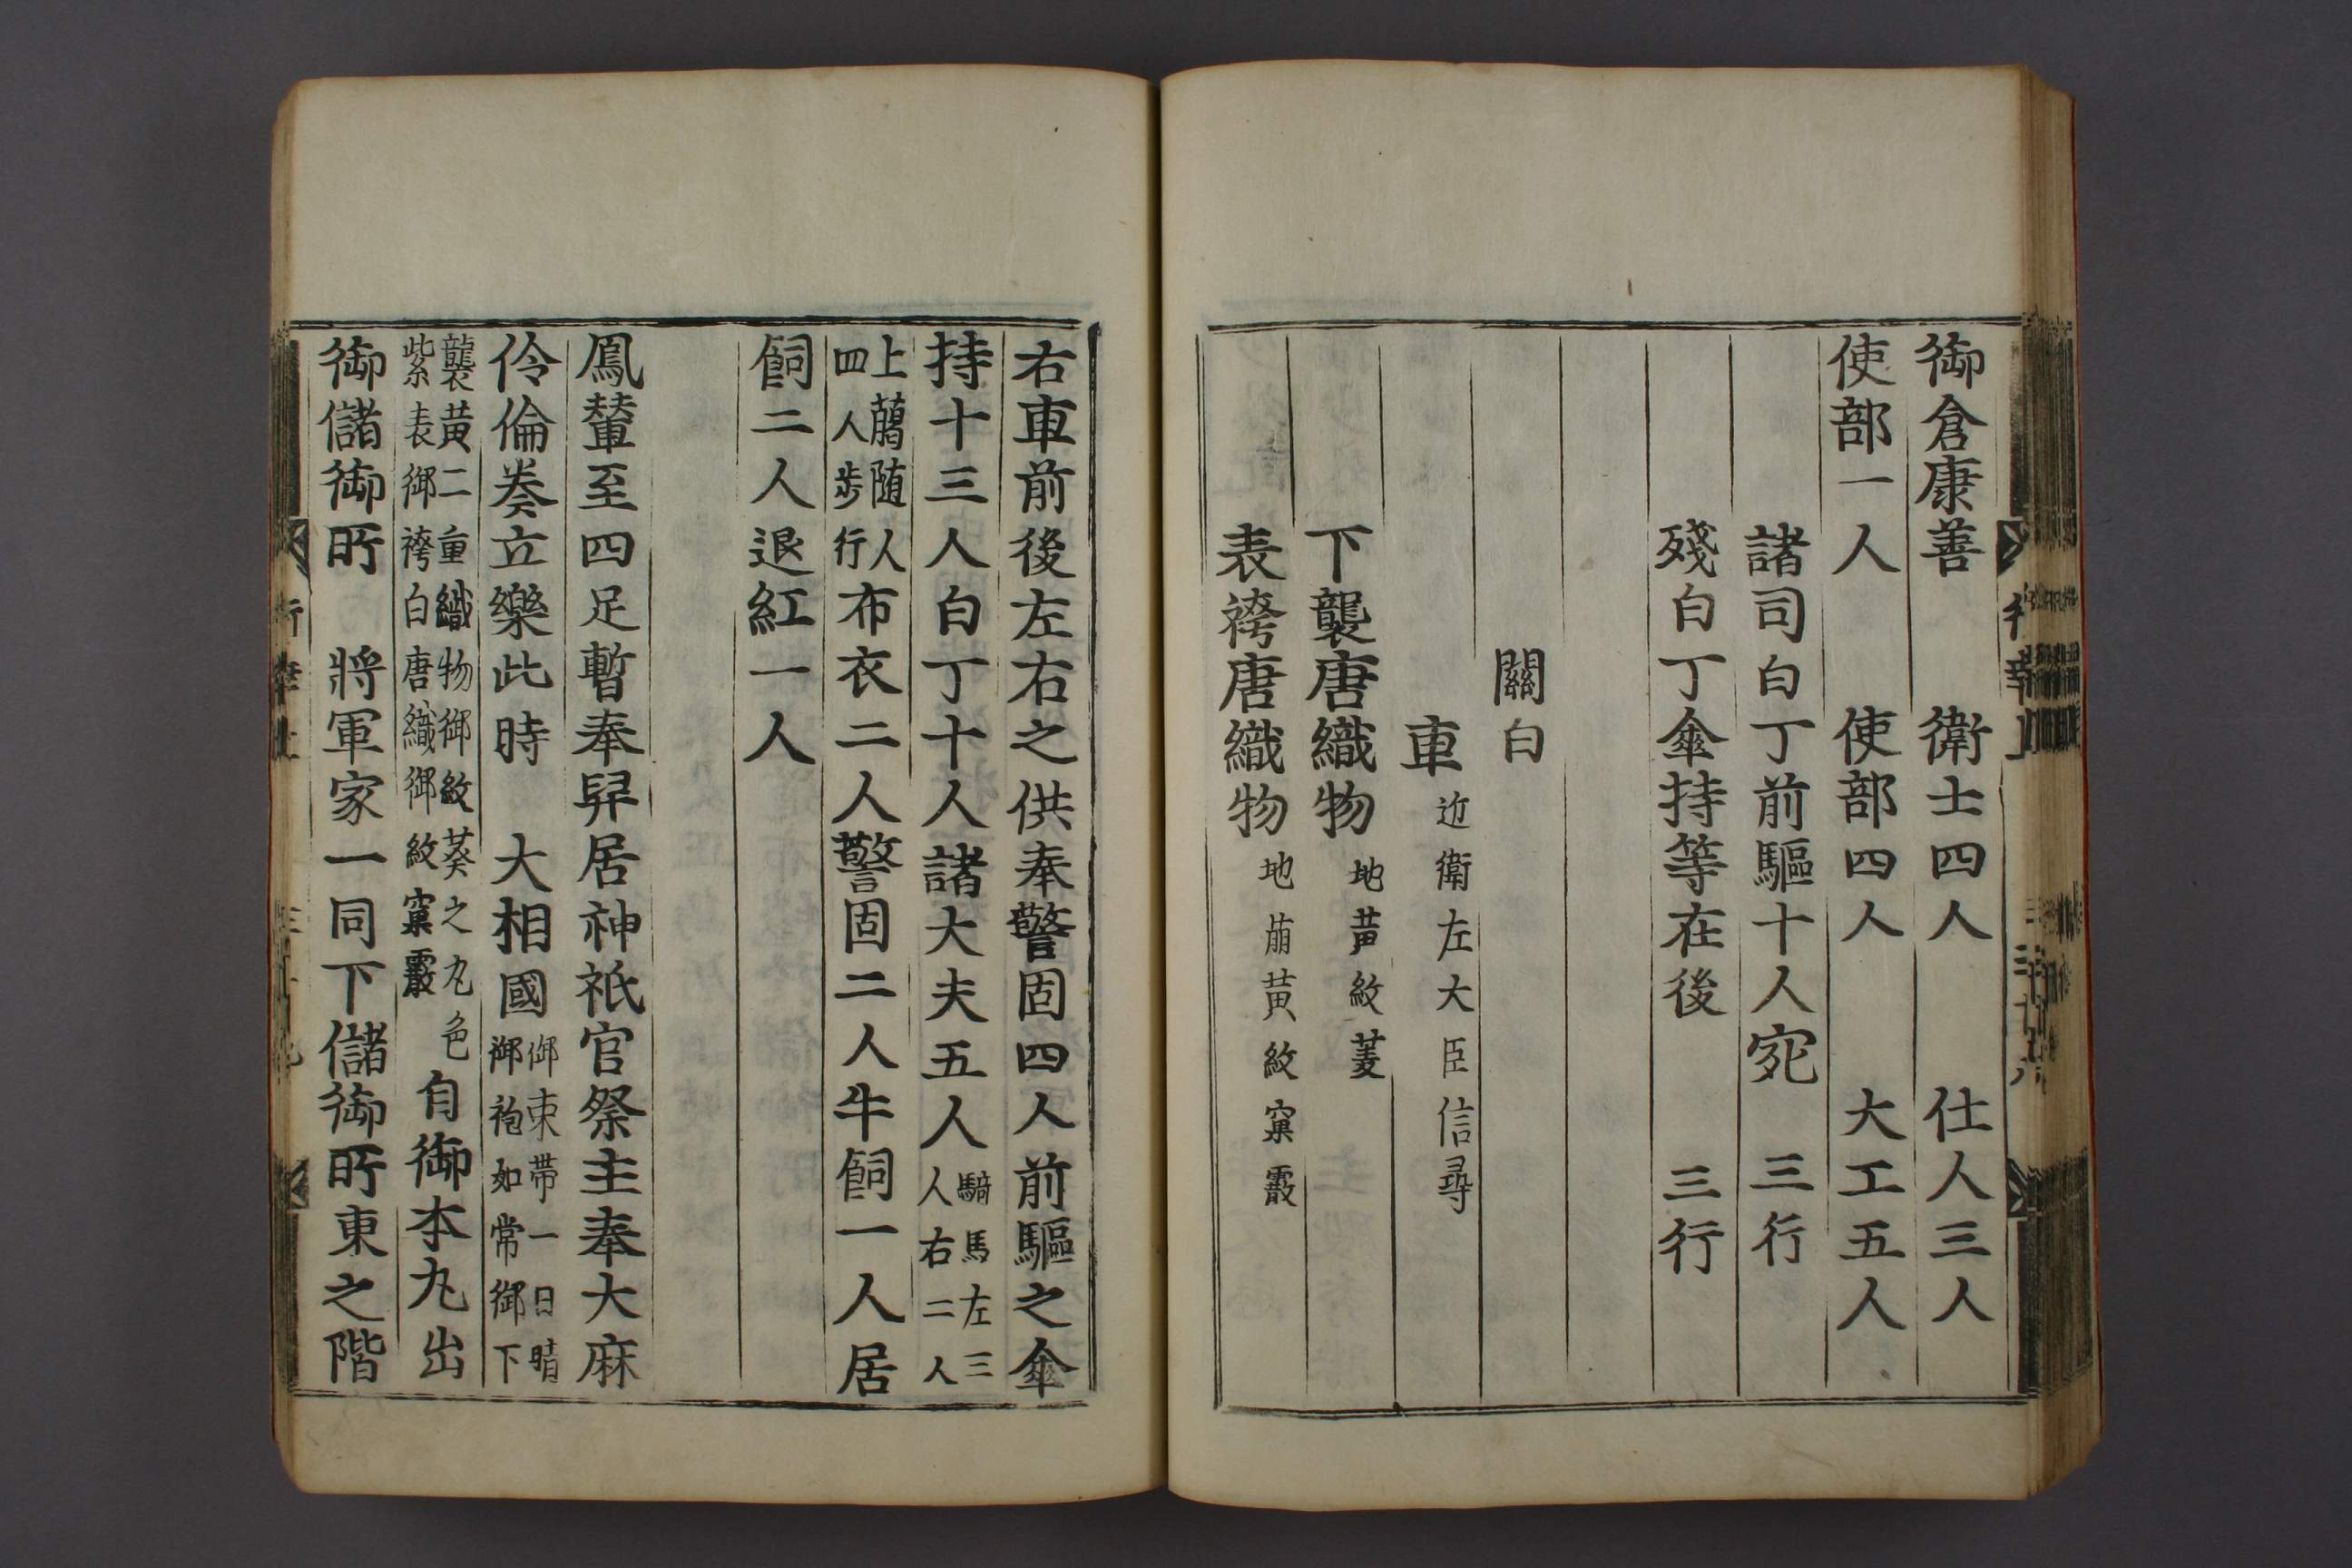 御倉康善　衛士四人　仕人三人
使部一人　使部四人　大工五人
諸司白丁前驅十人宛　三行
殘白丁傘持等在後　三行
關白
車 近衛左大臣信尋
下襲唐織物 地
表袴唐織物 地萠黄紋窠霰
右車前後左右之供奉警固四人前驅之傘
持十三人白丁十人諸大夫五人 騎馬左三
人右二人
上﨟随人
四人歩行 布衣二人警固二人牛飼一人居
飼二人退紅一人
鳳輦至四足暫奉舁居神祇官祭主奉大麻
伶倫奏立樂此時　大相國 御束帯一日晴
御袍如常御下
襲黄二重織物御紋葵之丸色
紫表御袴白唐織御紋窠霰 自御本丸出
御儲御所　將軍家一同下儲御所東之階